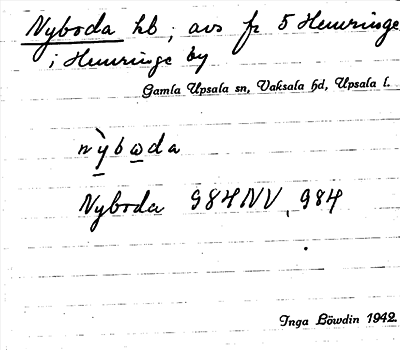 Nyboda hb, avs fr 5 Hemringe
i Hemringe by
Gamla Upsala sn, Vaksala hd, Upsala l.
nỳbωda
Nyboda 984NV, 984
Inga Löwdin 1942.